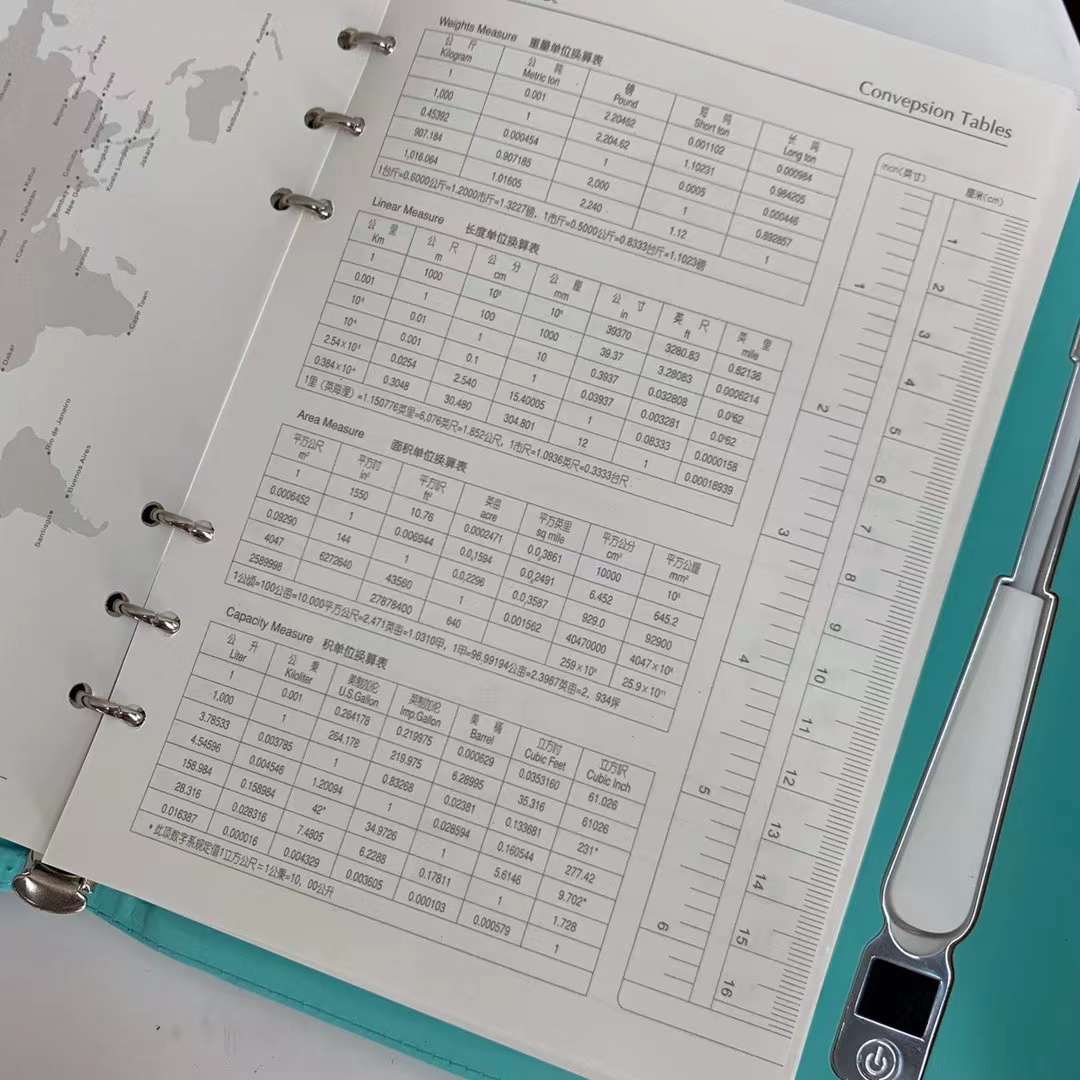 Convepsion Tables
Weights Measure 重量单位换算表
公斤 公吨 磅 短吨 长吨
Kilogram Metric ton Pound Short ton Long ton
1 0.001 2.20462 0.001102 0.000984
1,000 1 2,204.62 1.10231 0.984205
0.45392 0.000454 1 0.0005 0.000446
907.184 0.907185 2,000 1 0.892857
1,016.064 1.01605 2,240 1.12 1
1台斤=0.6000公斤=1.2000市斤=1.3227磅，1市斤=0.5000公斤=0.8333台斤=1.1023磅
Linear Measure 长度单位换算表
公里 公尺 公分 公厘 公寸 英尺 英里
Km m cm mm in ft mile
1 1000 10⁵ 10⁶ 39370 3280.83 0.62136
0.001 1 100 1000 39.37 3.28083 0.0006214
0.01 1 10 0.3937 0.032808 0.0⁵62
0.001 0.1 1 0.03937 0.003281 0.0⁶62
0.0254 2.540 15.40005 1 0.08333 0.0000158
0.3048 30.480 304.801 12 1 0.00018939
1里（英海里）=1.150776英里=6,076英尺=1.852公尺，1市尺=1.0936英尺=0.3333台尺
Area Measure 面积单位换算表
平方公尺 平方吋 平方呎 英亩 平方英里 平方公分 平方公厘
m² in² ft² acre sq mile cm² mm²
1 1550 10.76 0.0002471 10000
0.0006452 1 0.006944 6.452 645.2
0.09290 144 1 929.0 92900
4047 6272640 43560 1 0.001562 4070000
2589998 27878400 640
1公顷=100公亩=10.000平方公尺=2.471英亩=1.0310甲，1甲=96,99194公亩=2.3967英亩=2，934坪
Capacity Measure 积单位换算表
公升 公秉 美制加伦 英制加伦 美桶 立方呎 立方吋
Liter Kiloliter U.S.Gallon Imp.Gallon Barrel Cubic Feet Cubic Inch
1 0.001 0.264178 0.219975 0.000629 0.0353160 61.026
1,000 1 264.178 219.975 6.28995 35.316 61026
3.78533 0.003785 1 0.83268 0.02381 0.133681 231*
4.54596 0.004546 1.20094 1 0.028594 0.160544 277.42
158.984 0.158984 42* 34.9726 1 5.6146 9.702*
28.316 0.028316 7.4805 6.2288 0.17811 1 1.728
0.016387 0.000016 0.004329 0.003605 0.000103 0.000579 1
*此项数字系规定值1立方公尺=1公秉=10，00公升
inch(英寸)
1
2
3
4
5
6
厘米(cm)
1
2
3
4
5
6
7
8
9
10
11
12
13
14
15
16
Sydney
Melbourne
Jakarta
Taipei
Beijing
Bangkok
Kuala Lumpur
Bombay
New Delhi
Kabul
Cairo
Nairobi
Cape Town
Dakar
Rio de Janeiro
Buenos Aires
Santiago